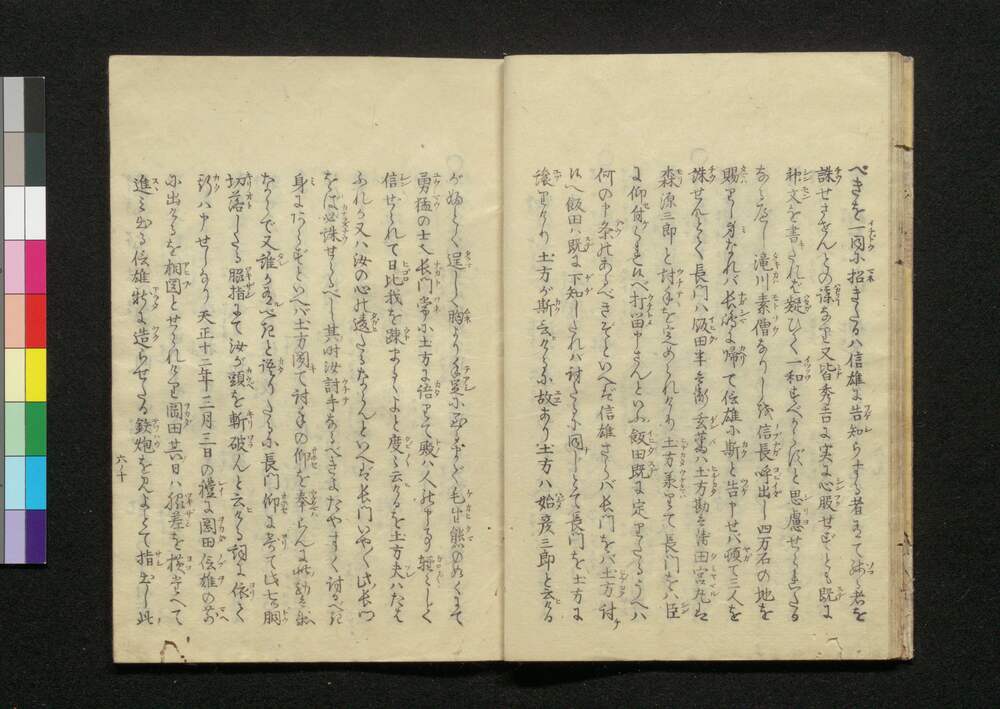 べきを一同に招きたるハ信雄に告知らする者有て此者を
誅せさせんとの謀なり又皆秀吉に実に心服せずとも既に
神文を書たれば疑ひなく一和すべからずと思慮せしとなる
滝川素僧なりしを信長呼出し四万石の地を
賜りし身なれバ長嶋に帰て信雄に斯と告申せバ頓て三人を
誅せんとて長門ハ飯田半兵衛玄蕃ハ土方勘兵衛田宮丸は
森源三郎と討手を定められたり土方承りて長門ハ臣
に仰付られ候へ打留申さんといふ飯田既に定りたるうへハ
何の申条のあるべきぞといへど信雄さらバ長門をバ土方討
候へ飯田ハ既に下知したれバ討たるに同じとて長門を土方に
譲りたり土方が斯云たるに故あり土方ハ始彦三郎と云たる
が
逞しく胸より手足に 毛生熊のぬくまで
勇猛の士 長門常に土方に語りて殿ハ人 申さる事軽々しく
信ぜられて日比我を疎まるゝよと度々云たるを土方夫ハたえ
ふれか又ハ汝の心に違たるならんといへば長門いやとよ此長門
をば必誅せらるべし其時汝討手なるべきにたやすく討るべき
身にあらずといへバ土方聞て討手の仰を奉らんに此勘兵衛
ならで又誰か有べきと語りたるに長門 此 胴
切落したる脇指にて汝が頭を斬破んと云たる詞に依て
斯くハ申せしなり天正十二年三月三日の礼に岡田信雄の前
に出たるを相図とせられたり岡田其日ハ
進み出る信雄新に造らせたる鉄炮を見よとて指出し此
六ノ十